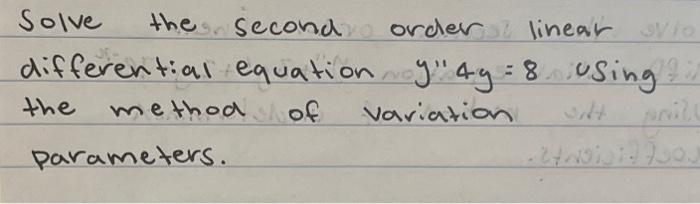 Solve the second order linear
differential equation y"4y = 8 using
the method of variation
parameters.